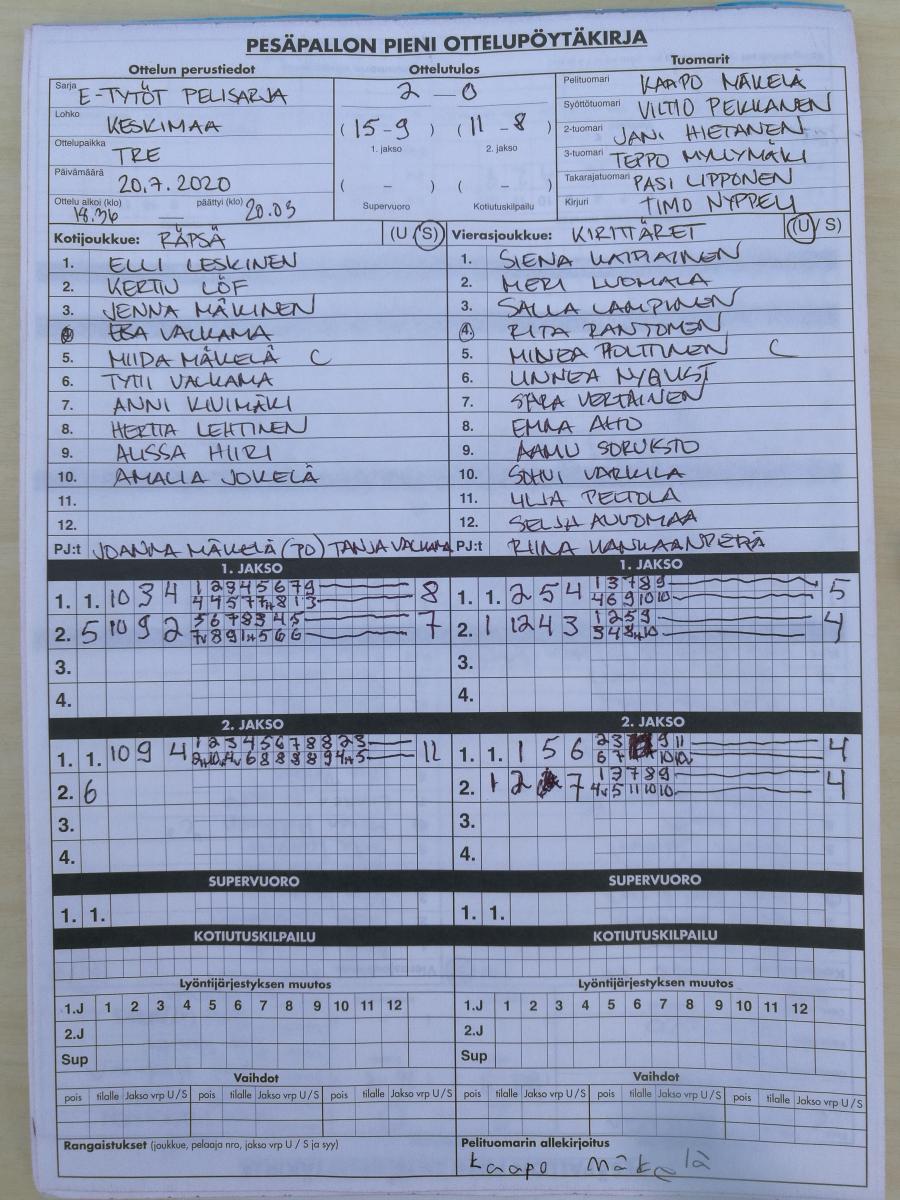 PESÄPALLON PIENI OTTELUPÖYTÄKIRJA
Ottelun perustiedot
Sarja E-TYTÖT PELISARJA
Lohko KESKIMAA
Ottelupaikka TRE
Päivämäärä 20.7.2020
Ottelu alkoi (klo) 18.36 — päättyi (klo) 20.03
Ottelutulos
2 – 0
(15-9) (11-8)
1. jakso 2. jakso
( – ) ( – )
Supervuoro Kotiutuskilpailu
Tuomarit
Pelituomari KAAPO MÄKELÄ
Syöttötuomari VILTIO PEKKANEN
2-tuomari JANI HIETANEN
3-tuomari TEPPO MYLLYMÄKI
Takarajatuomari PASI LIPPONEN
Kirjuri TIMO NYPPELI
Kotijoukkue: RÄPSÄ (U S)
1. ELLI LESKINEN
2. KERTTU LÖF
3. JENNA MÄKINEN
VALKAMA
5. MIIDA MÄKELÄ C
6. TYTTI VALKAMA
7. ANNI KIVIMÄKI
8. HERTTA LEHTINEN
9. ALISSA HIIRI
10. AMALIA JOKELA
11.
12.
PJ:t JOANNA MÄKELÄ (PO) TANJA VALKAMA
Vierasjoukkue: KIRITTÄRET (U/ S)
1. SIENA
2. MERI LUOMALA
3. SALLA LAMPINEN
4. RITA RANTONEN
5. MINEA POLTTINEN C
6. LINNEA NYQVIST
7. SARA VERTAINEN
8. EMMA AHO
9. AAMU
10. SOHVI VARKILA
11. ULJA PELTOLA
12. SELJA
PJ:t RIINA KANKAANPERÄ
1. JAKSO
1. 1. 10 3 4 1 2 3 4 5 6 7 9 8
2. 5 10 9 2 7
3.
4.
1. JAKSO
1. 1. 2 5 4 1 3 7 8 9 5
4 6 9 10 10
2. 1 12 4 3 1 2 5 9 4
3.
4.
2. JAKSO
1. 1. 10 9 4 1 2 3 4 5 6 7 8 8 2 3 11
2. 6
3.
4.
2. JAKSO
1. 1. 1 5 6 2 3 9 11 4
2. 1 2 7 1 3 7 8 9 4
3.
4.
SUPERVUORO
1. 1.
SUPERVUORO
1. 1.
KOTIUTUSKILPAILU
KOTIUTUSKILPAILU
Lyöntijärjestyksen muutos
1.J 1 2 3 4 5 6 7 8 9 10 11 12
2.J
Sup
Lyöntijärjestyksen muutos
1.J 1 2 3 4 5 6 7 8 9 10 11 12
2.J
Sup
Vaihdot
pois tilalle Jakso vrp U / S pois tilalle Jakso vrp U / S pois tilalle Jakso vrp U / S
Vaihdot
pois tilalle Jakso vrp U / S pois tilalle Jakso vrp U / S pois tilalle Jakso vrp U / S
Rangaistukset (joukkue, pelaaja nro, jakso vrp U / S ja syy)
Pelituomarin allekirjoitus
Kaapo Mäkelä